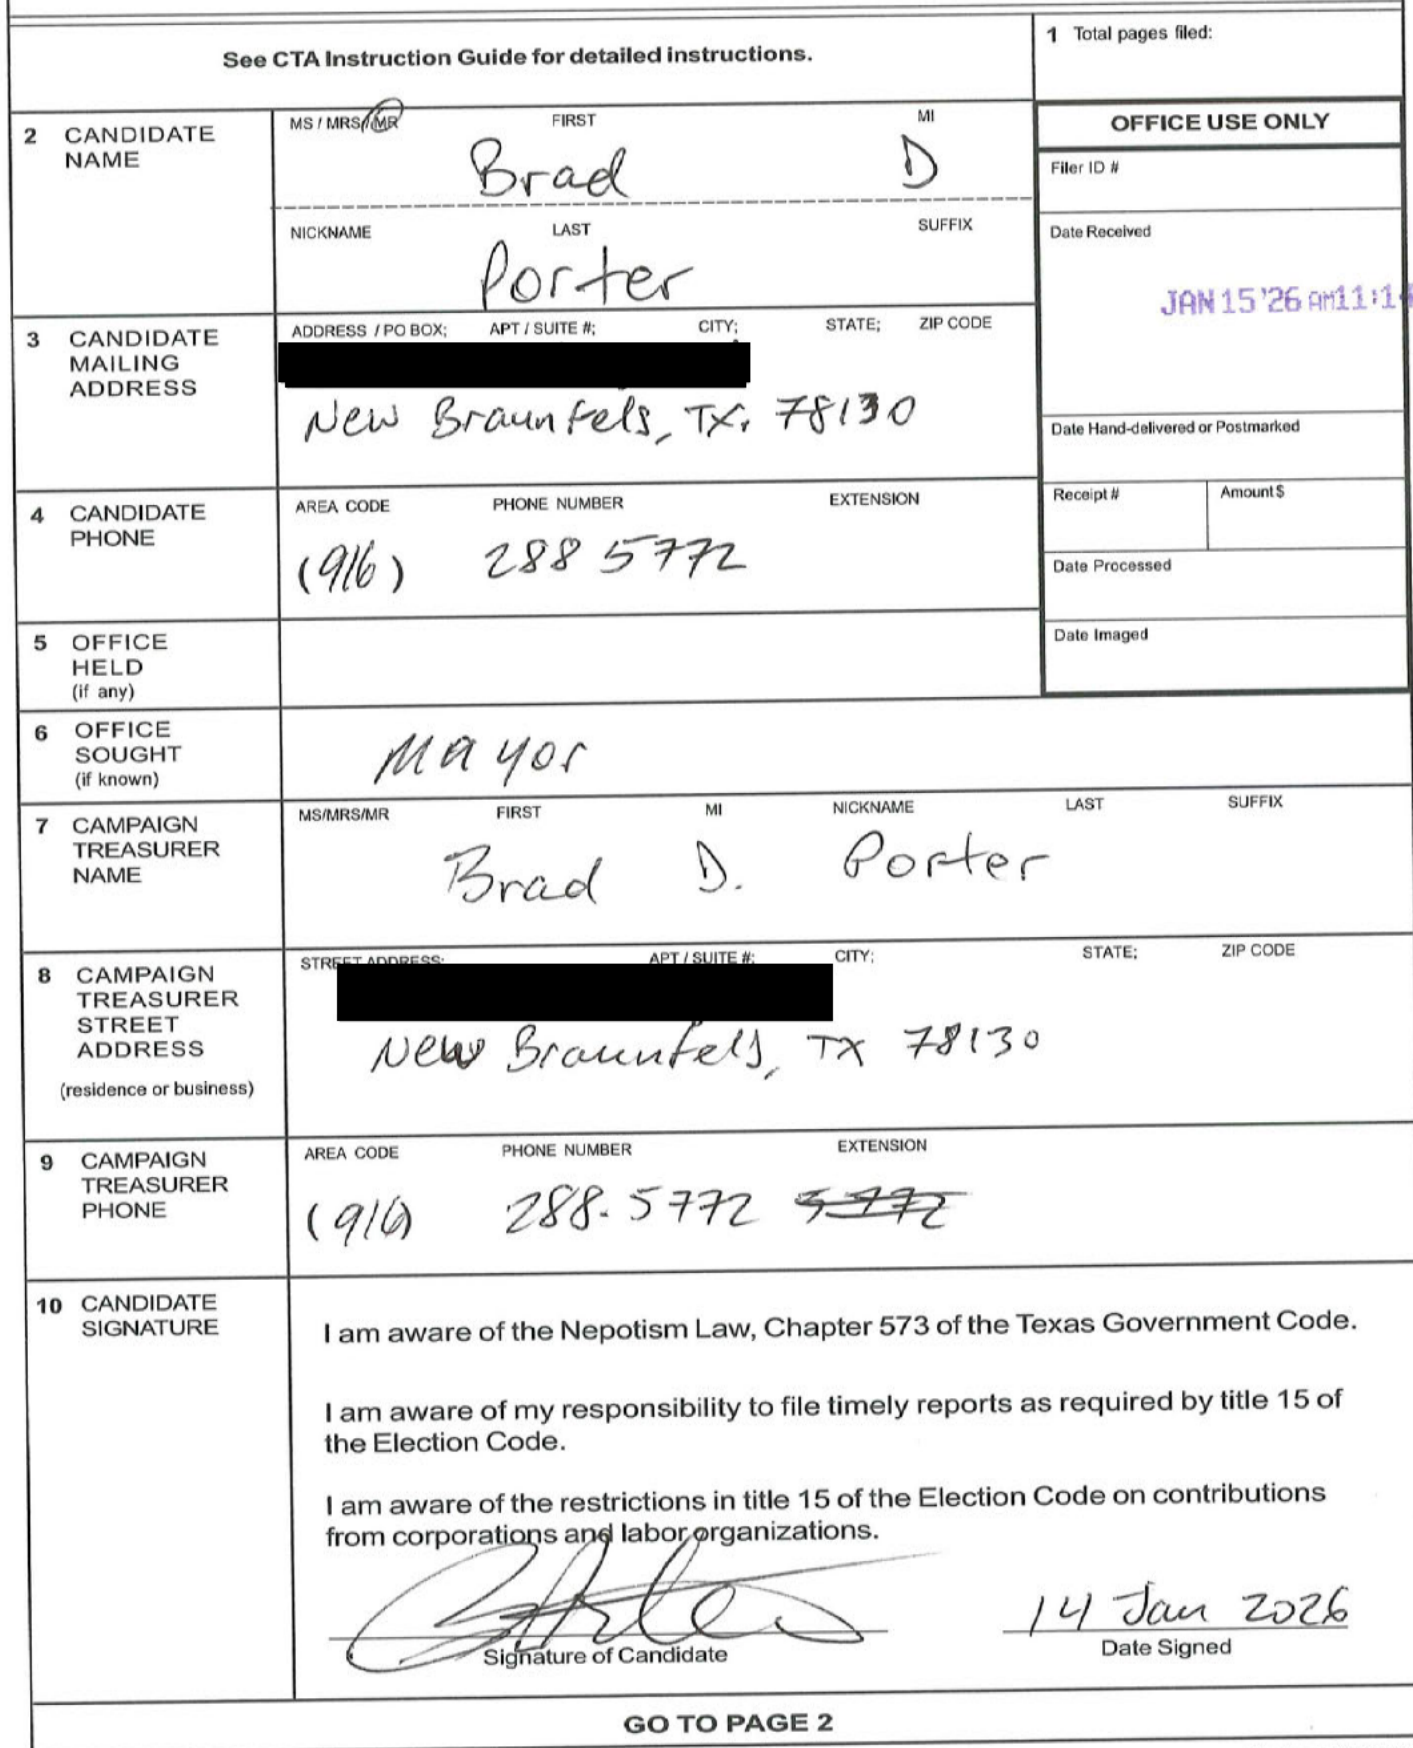 See CTA Instruction Guide for detailed instructions.
1 Total pages filed:
2 CANDIDATE NAME
MS / MRS / MR FIRST MI
Brad D
NICKNAME LAST SUFFIX
Porter
OFFICE USE ONLY
Filer ID #
Date Received
JAN 15 '26 AM11:1
3 CANDIDATE MAILING ADDRESS
ADDRESS / PO BOX; APT / SUITE #; CITY; STATE; ZIP CODE
New Braunfels, TX. 78130
Date Hand-delivered or Postmarked
Receipt # Amount $
Date Processed
Date Imaged
4 CANDIDATE PHONE
AREA CODE PHONE NUMBER EXTENSION
(916) 288 5772
5 OFFICE HELD (if any)
6 OFFICE SOUGHT (if known)
Mayor
7 CAMPAIGN TREASURER NAME
MS/MRS/MR FIRST MI NICKNAME LAST SUFFIX
Brad D. Porter
8 CAMPAIGN TREASURER STREET ADDRESS
(residence or business)
STREET ADDRESS; APT / SUITE #; CITY; STATE; ZIP CODE
New Braunfels, TX 78130
9 CAMPAIGN TREASURER PHONE
AREA CODE PHONE NUMBER EXTENSION
(916) 288-5772 5772
10 CANDIDATE SIGNATURE
I am aware of the Nepotism Law, Chapter 573 of the Texas Government Code.
I am aware of my responsibility to file timely reports as required by title 15 of
the Election Code.
I am aware of the restrictions in title 15 of the Election Code on contributions
from corporations and labor organizations.
14 Jan 2026
Signature of Candidate Date Signed
GO TO PAGE 2